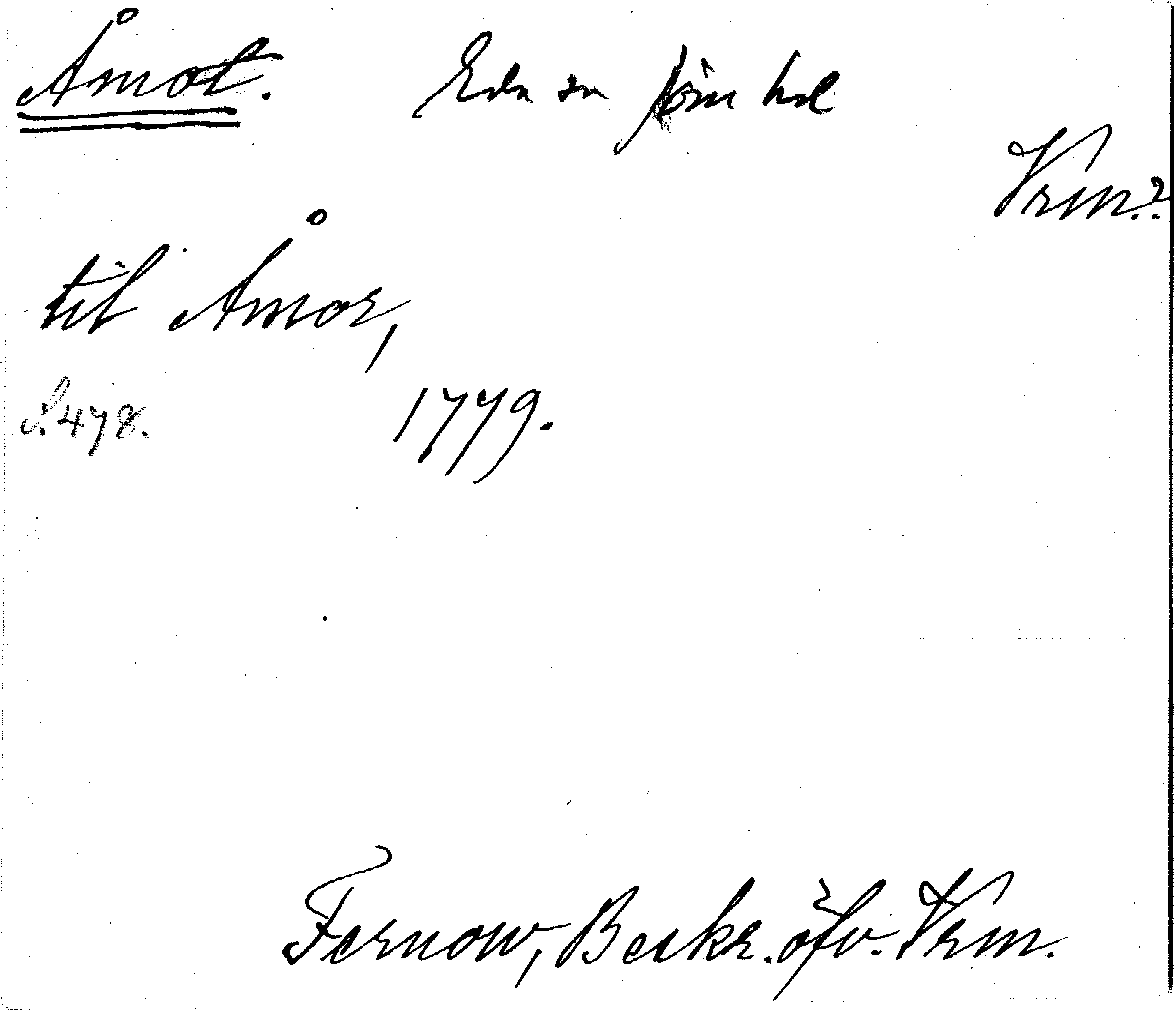 Åmot. Eda sn Jösse hd
Vrm.?
til Åmor,
s. 478. 1779.
Fernow, Beskr. öfv. Vrm.